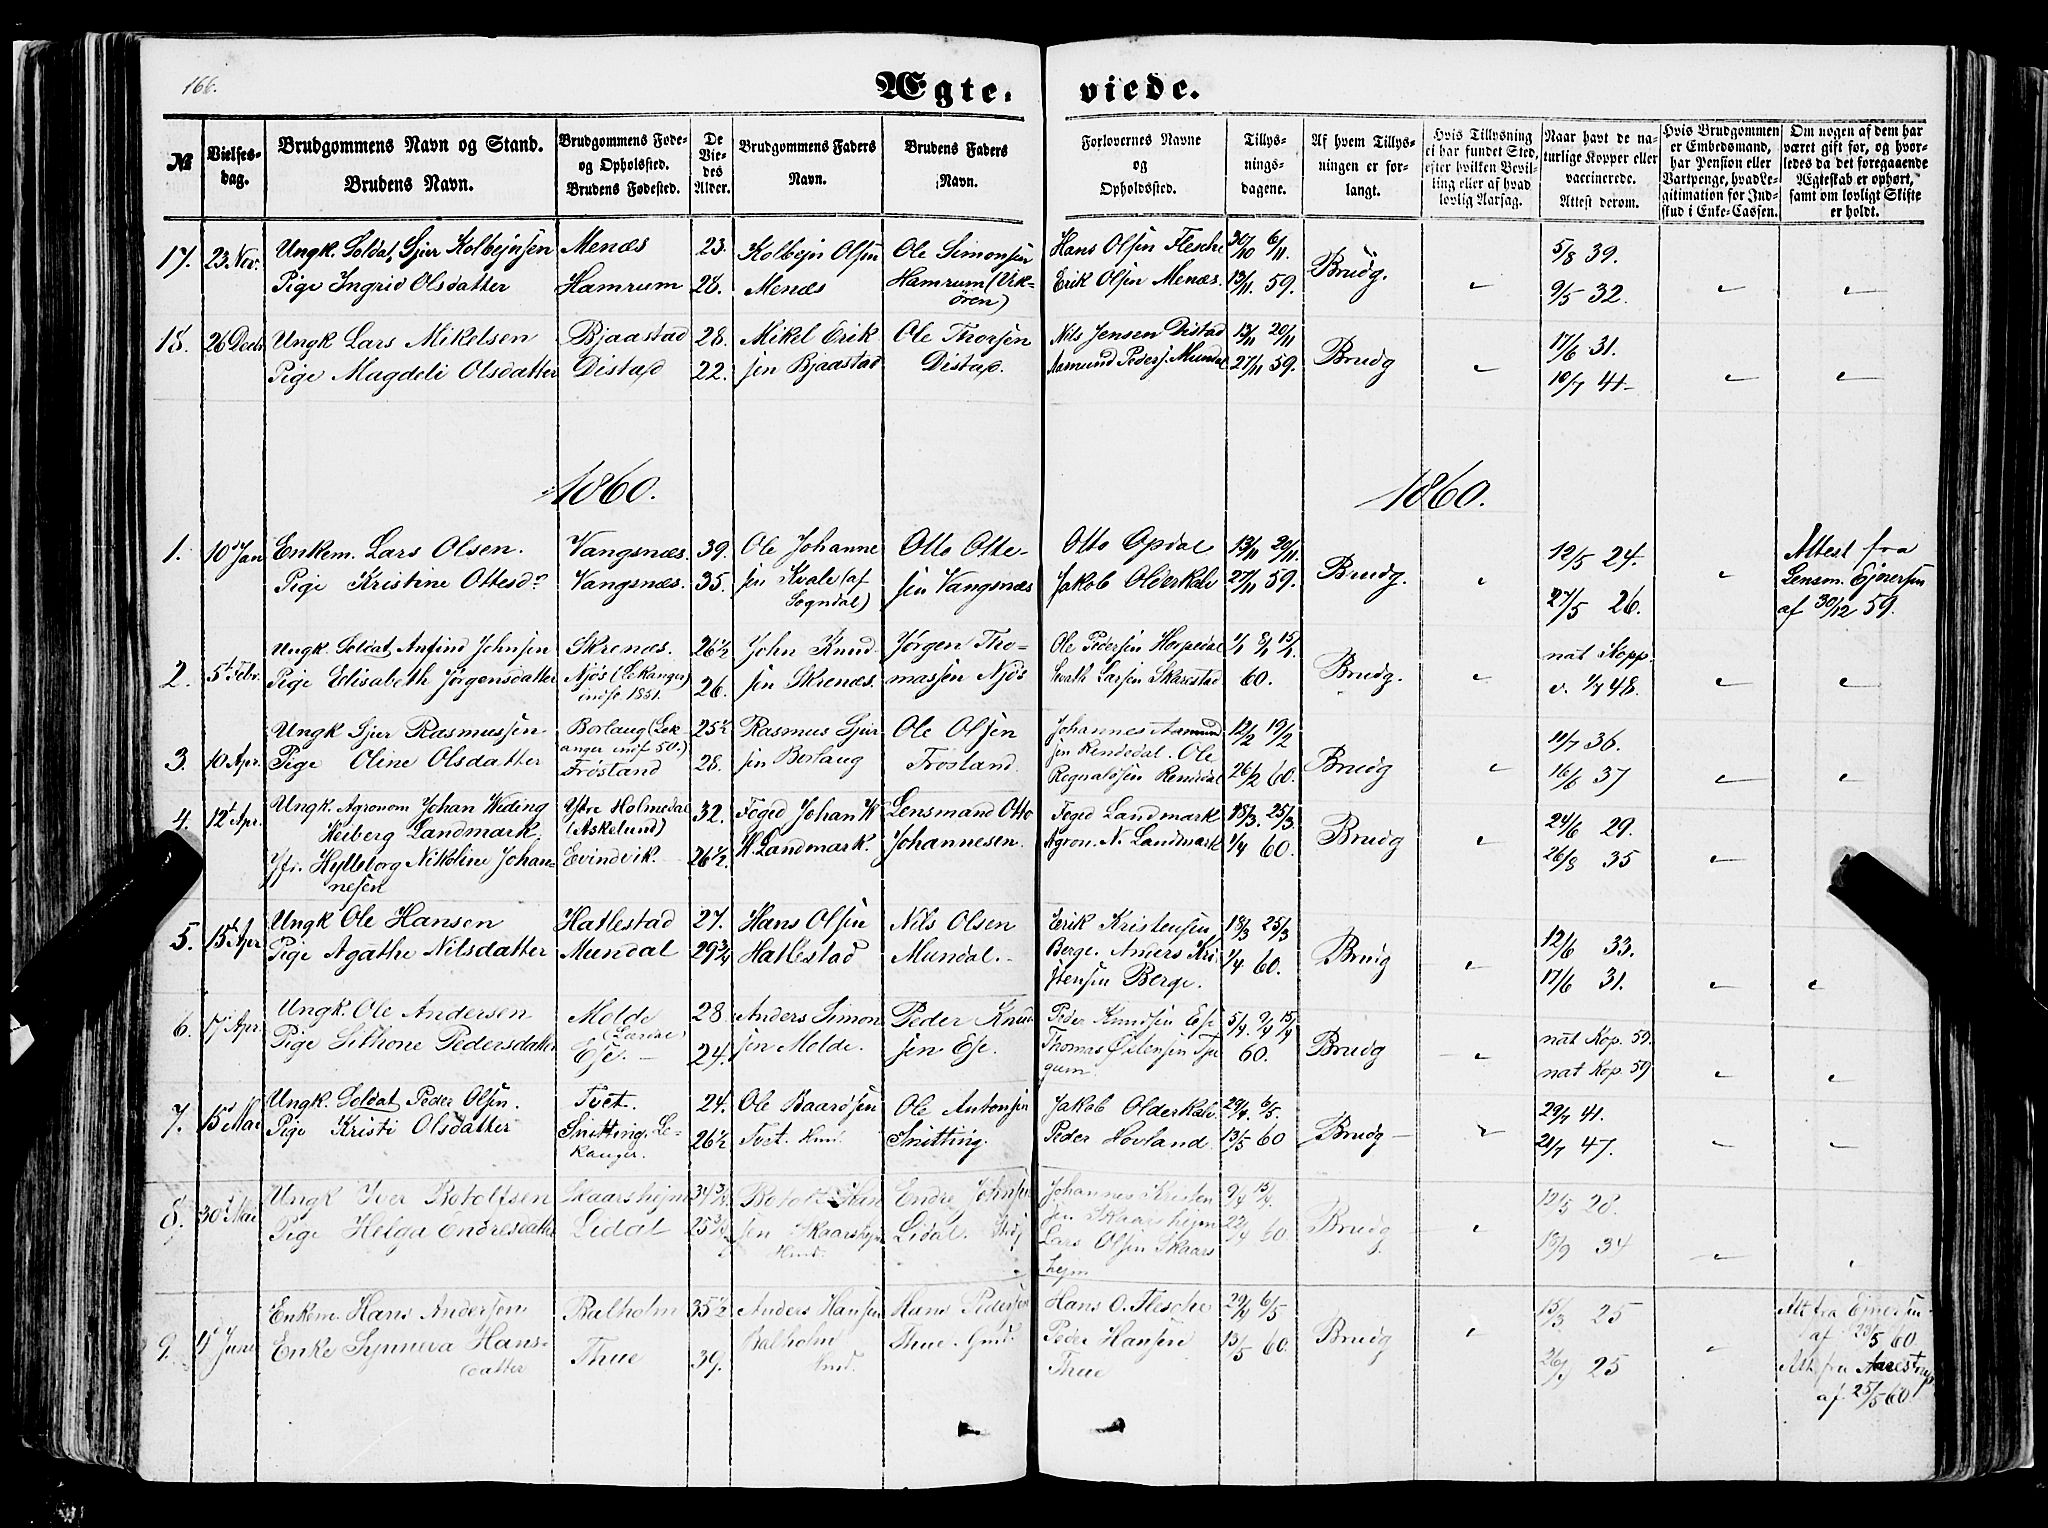 166.
Ægte. viede.
№
Vielses-
dag.
Brudgommens Navn og Stand.
Brudens Navn.
Brudgommens Føde-
og Opholdsfted.
Brudens Fødested.
De
Vie-
des
Alder.
Brudgommens Faders
Navn.
Brudens Faders
Navn.
Forlovernes Navne
og
Opholdssted.
Tillys-
nings-
dagene.
Af hvem Tillys-
ningen er for-
langt.
Hvis Tillysning
ei har fundet Sted,
efter hvilken Bevil-
ling eller af hvad
lovlig Aarsag.
Naar havt de na-
turlige Kopper eller
vaccinerede.
Attest derom.
Hvis Brudgommen
er Embedsmand,
har Pension eller
Vartpenge, hvad Le-
gitimation for Ind-
skud i Enke-Cassen.
Om nogen af dem har
været gift for, og hvor-
ledes da det foregaaende
Ægteskab er ophørt,
samt om lovligt Skifte
er holdt.
17. 23 Nov. Ungk. Soldat, Sjur Kolbejnsen Menæs 23. Kolbejn Olsen Ole Simonsen Hans Olsen Flesche 30/10 6/11 Brudg. 5/8 39.
Pige Ingrid Olsdatter Hamrum 28. Menæs Hamrum (Vik- Erik Olsen Menæs. 13/11. 59. 9/5 32.
ören)
18. 26 Decb. Ungk Lars Mikelsen Bjaastad 28. Mikel Erik Ole Thorsen Nils Jensen Distad 13/11 20/11 Brudg 17/6 31.
Pige Magdeli Olsdatter Distad 22. sen Bjaastad Distad. Aamund Peders. Mundal 27/11 59. 10/7 41
1860. 1860.
1. 10d Jan Enkem. Lars Olsen. Vangsnæs. 39. Ole Johanne Otto Otte- Otto Opdal 13/11 20/11 Brudg. 12/5 24. Attest fra
Pige Kristine Ottesdr Vangsnæs. 35. sen Kvale (af sen Vangsnæs Jakob Olderkalv 27/11 59. 27/5 26. Lensm. Ejnersen
Sogndal) af 30/12 59.
2. 5t Febr. Ungk. Soldat, Anfind Johnsen Skrenæs. 26½ John Knud Jørgen Tho- Ole Pedersen Hoppedal 1/1 8/1 15/1. Brudg. nat Kopp.
Pige Elisabeth Jørgensdatter Njøs (Lekanger) 26. sen Skrenæs. massen Njøs Larsen Skarestad 60. v. 1/7 48.
indf 1851.
3. 10 Apr. Ungk Sjur Rasmussen Borlaug (Lek 25½ Rasmus Sjur Ole Olsen Johannes Aamund 12/2 19/2 Brudg 11/7 36.
anger indf 50.)
Pige Oline Olsdatter Frøstand 28. sen Borlaug Frøsland. sen Rendedal. Ole 26/2 60. 16/6 37
Rognaldsen Rendedal
4. 12t Apr. Ungk. Agronom Johan Widing Ytre Holmedal 32. Foged Johan K Lensmand Otto Foged Landmark 18/3. 25/3. Brudg 24/6 29.
Heiberg Landmark. (Askelund)
Jfr. Hylleborg Nikoline Johan- Evindvik. 26½. H. Landmark. Johannesen. Agron. N. Landmark 1/4 60. 26/8 35
nesen
5. 15d Apr Ungk Ole Hansen Hatlestad 27. Hans Olsen Nils Olsen Erik Kristensen 18/3 25/3 Brudg 12/6 33.
Pige Agathe Nilsdatter Mundal 29¾ Hatlestad Mundal. Berge. Anders Kri 1/4 60. 17/6 31.
stensen Berge.
6. 17d Apr. Ungk. Ole Andersen Molde 28. Anders Simon Peder Knud Peder Knudsen Ese 5/4. 9/4 15/4 Brudg nat Kop. 59.
Pige Sithone Pedersdatter Ese. 24. sen Molde. sen Ese. Thomas Østensen Tje 60. nat Kop. 59
gum.
7. 15d Mai Ungk. Soldat Peder Olsen. Tvet. 24. Ole Baardsen Ole Antonsen Jakob Olderkalv. 29/4. 6/5. Brudg 29/7 41.
Pige Kristi Olsdatter Snitting. Le- 26½ Tvet. Hmd. Snitting. Peder Hovland. 13/5 60 21/7 47.
kanger.
8. 30d Mai Ungk Iver Botolfsen Skaarshejm 34¾ Botolf Han Endre Johnsen Johannes Kristen 9/4 15/4. Brudg 12/5 28.
Pige Helga Endresdatter Lidal 25¾ sen Skaarshejm Lidal. sen Skaarshejm 22/4 60 18/9 34
Hmd. Lars Olsen Skaars
hejm
9. 4d Juni Enkem. Hans Andersen Balholm 35½ Anders Hansen Hans Pedersen Hans O. Flesche 29/4 6/5 Brudg 15/3 25 Att fra Ejnersen
Enke Synneva Hans- Thue 39. Balholm Thue. Gmd. Peder Hansen 13/5 60. 26/9 25 af 29/5 60.
datter Hmd. Thue Att. fra Aarestrup
af 25/5 60